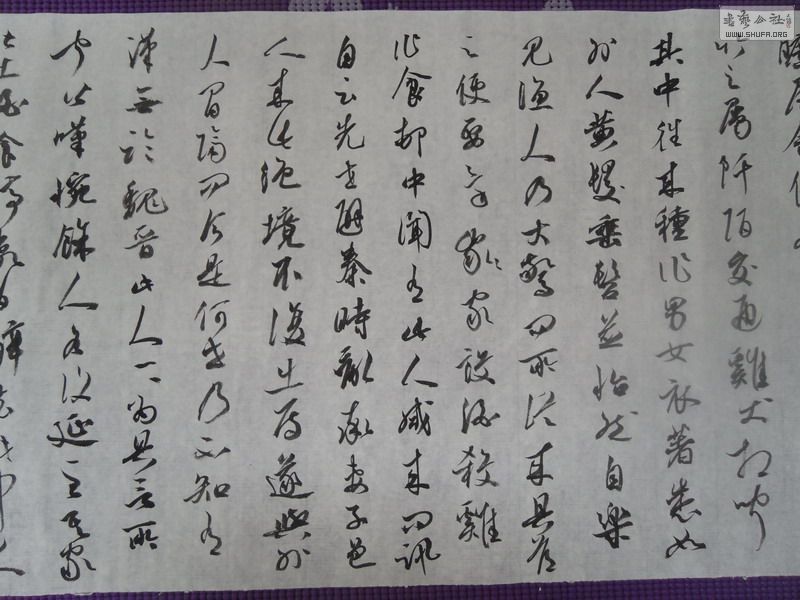 書藝公社
WWW.SHUFA.ORG
屋舍儼
竹之屬阡陌交通雞犬相聞
其中往來種作男女衣著悉如
外人黃髮垂髫並怡然自樂
見漁人乃大驚問所從來具答
之便要還家家設酒殺雞
作食邨中聞有此人咸來問訊
自云先世避秦時亂率妻子邑
人來此絕境不復出焉遂與外
人間隔問今是何世乃不知有
漢無論魏晉此人一一為具言所
聞皆嘆惋餘人各復延至其家
皆出酒食停數日辭去此中人